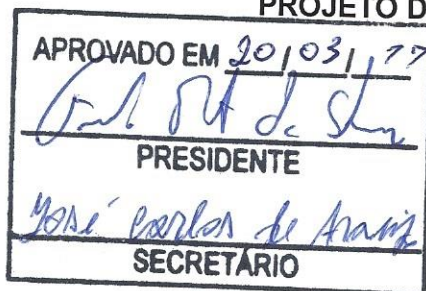 PROJETO D
APROVADO EM 20/03/17
PRESIDENTE
José Carlos de Araujo
SECRETÁRIO